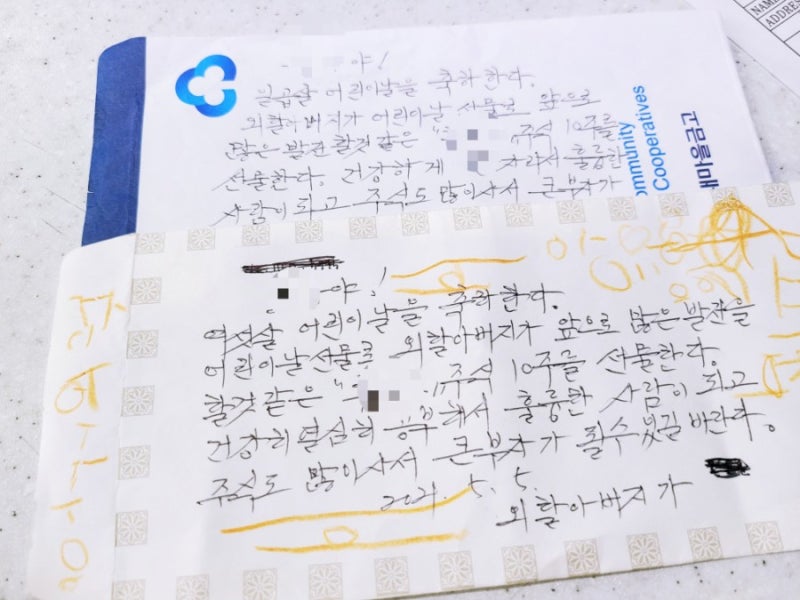 야!
일곱살 어린이날을 축하한다.
외할아버지가 어린이날 선물로 앞으로
많은 발전 할것 같은 " 주식 10주를
선물한다. 건강하게 자라서 훌륭한
사람이 되고 주식도 많이 사서 큰부자가
mmunity
Cooperatives
새마을금고
NAME
ADDRES
야!
여섯살 어린이날을 축하한다.
어린이날 선물로 외할아버지가 앞으로 많은 발전을
할것 같은 " 주식 10주를 선물한다.
건강히 열심히 공부해서 훌륭한 사람이 되고
주식도 많이 사서 큰부자가 될수 있길 바란다.
2021. 5. 5.
외할아버지가